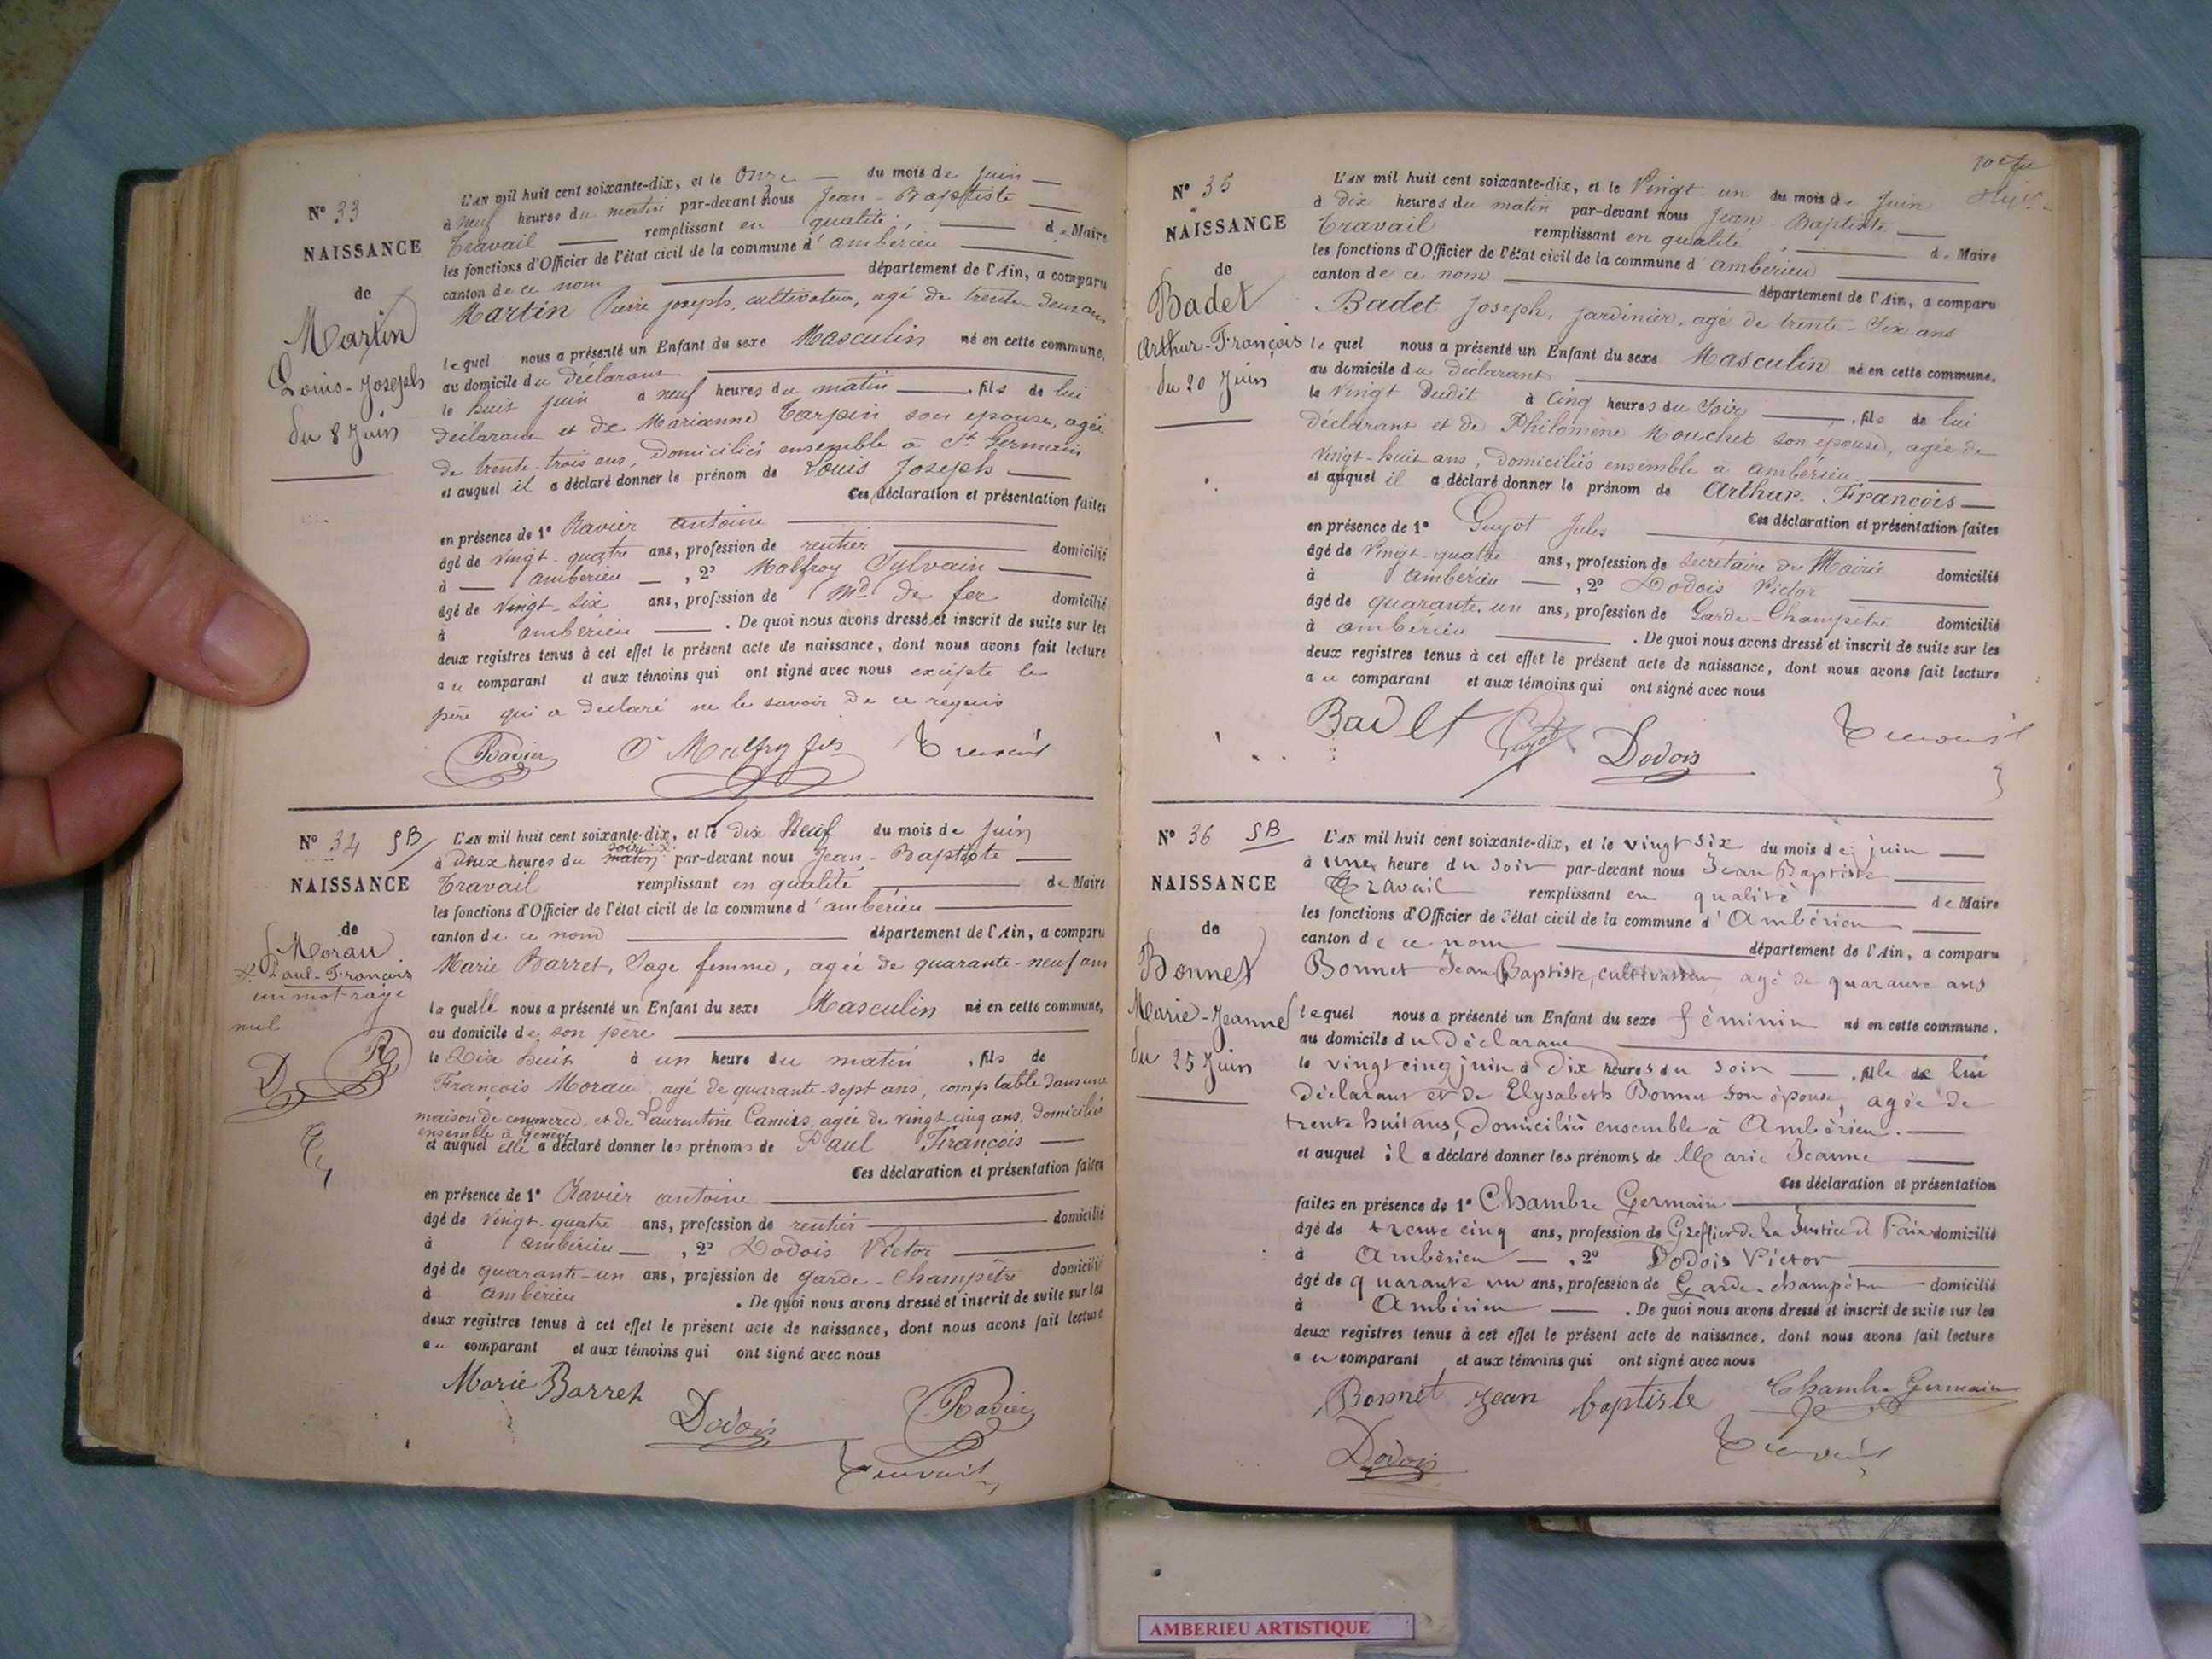 N° 33
NAISSANCE
de
Martin
Louis-Joseph
du 8 Juin
L'AN mil huit cent soixante-dix, et le Onze — du mois de Juin —
à neuf heures du matin par-devant nous Jean-Baptiste —
Travail — remplissant en qualité, — de Maire
les fonctions d'Officier de l'état civil de la commune d'ambérieu —
canton de ce nom — département de l'Ain, a comparu
Martin Pierre joseph, cultivateur, agé de trente deux ans
lequel nous a présenté un Enfant du sexe Masculin né en cette commune,
au domicile du déclarant —
le huit juin à neuf heures du matin —, fils de lui
déclarant et de Marianne Tarpin son epouse, agée
de trente-trois ans, Domiciliés ensemble à St Germain
et auquel il a déclaré donner le prénom de Louis Joseph —
Ces déclaration et présentation faites
en présence de 1° Ravier antoine —
âgé de vingt-quatre ans, profession de rentier — domicilié
à — ambérieu —, 2° Malfroy Sylvain —
âgé de vingt-six ans, profession de Md de fer domicilié
à ambérieu —. De quoi nous avons dressé et inscrit de suite sur les
deux registres tenus à cet effet le présent acte de naissance, dont nous avons fait lecture
au comparant et aux témoins qui ont signé avec nous excepté le
père qui a declaré ne le savoir de ce requis
Ravier Malfroy fils Travail
N° 34 SB
NAISSANCE
de
Morau
Paul-François
un mot rayé
nul
L'AN mil huit cent soixante-dix, et le dix Neuf du mois de Juin
soir
à deux heures du matin par-devant nous Jean-Baptiste —
Travail remplissant en qualité — de Maire
les fonctions d'Officier de l'état civil de la commune d'ambérieu —
canton de ce nom — département de l'Ain, a comparu
Marie Barret, Sage femme, agée de quarante-neuf ans
laquelle nous a présenté un Enfant du sexe Masculin né en cette commune,
au domicile de son père —
le Dix huit à un heure du matin, fils de
François Morau, agé de quarante-sept ans, comptable dans une
maison de commerce, et de Laurentine Camies, agée de vingt-cinq ans, domiciliés
ensemble à Genève
et auquel elle a déclaré donner les prénoms de Paul François —
Ces déclaration et présentation faites
en présence de 1° Ravier antoine —
âgé de vingt-quatre ans, profession de rentier — domicilié
à ambérieu —, 2° Dodois Victor —
âgé de quarante-un ans, profession de garde-Champêtre domicilié
à ambérieu. De quoi nous avons dressé et inscrit de suite sur les
deux registres tenus à cet effet le présent acte de naissance, dont nous avons fait lecture
au comparant et aux témoins qui ont signé avec nous
Marie Barret Dodois Ravier
Travail
N° 35
NAISSANCE
de
Badet
Arthur-François
du 20 Juin
L'AN mil huit cent soixante-dix, et le Vingt-un du mois de Juin
à dix heures du matin par-devant nous Jean Baptiste —
Travail remplissant en qualité, — de Maire
les fonctions d'Officier de l'état civil de la commune d'ambérieu —
canton de ce nom — département de l'Ain, a comparu
Badet Joseph, jardinier, agé de trente-Six ans
lequel nous a présenté un Enfant du sexe Masculin né en cette commune,
au domicile du déclarant —
le Vingt Dudit à Cinq heures du Soir —, fils de lui
déclarant et de Philomène Mouchet son épouse, agée de
vingt-huit ans, domiciliés ensemble à ambérieu —
et auquel il a déclaré donner le prénom de Arthur-François —
Ces déclaration et présentation faites
en présence de 1° Guyot Jules —
âgé de vingt-quatre ans, profession de secrétaire de Mairie domicilié
à ambérieu —, 2° Dodois Victor —
âgé de quarante-un ans, profession de Garde-Champêtre domicilié
à ambérieu —. De quoi nous avons dressé et inscrit de suite sur les
deux registres tenus à cet effet le présent acte de naissance, dont nous avons fait lecture
au comparant et aux témoins qui ont signé avec nous
Badet Guyot Dodois Travail
N° 36 SB
NAISSANCE
de
Bonnet
Marie-Jeanne
du 25 Juin
L'AN mil huit cent soixante-dix, et le vingt six du mois de juin —
à une heure du soir par-devant nous Jean Baptiste —
Travail remplissant en qualité — de Maire
les fonctions d'Officier de l'état civil de la commune d'Ambérieu —
canton de ce nom — département de l'Ain, a comparu
Bonnet Jean Baptiste, cultivateur agé de quarante ans
lequel nous a présenté un Enfant du sexe féminin né en cette commune,
au domicile du Déclarant —
le vingt cinq juin à Dix heures du soir —, fille de lui
déclarant et de Elysabeth Bonnet son épouse, agée de
trente huit ans, Domiciliés ensemble à Ambérieu. —
et auquel il a déclaré donner les prénoms de Marie Jeanne —
Ces déclaration et présentation
faites en présence de 1° Chambre Germain —
âgé de trente cinq ans, profession de Greffier de la Justice d Paix domicilié
à Ambérieu —, 2° Dodois Victor —
âgé de quarante un ans, profession de Garde-champêtre — domicilié
à Ambérieu —. De quoi nous avons dressé et inscrit de suite sur les
deux registres tenus à cet effet le présent acte de naissance, dont nous avons fait lecture
au comparant et aux témoins qui ont signé avec nous
Bonnet Jean baptiste Chambre Germain
Dodois Travail
AMBERIEU ARTISTIQUE